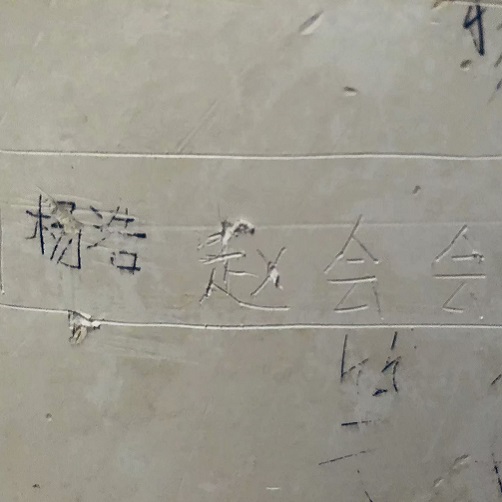 杨浩 赵会会